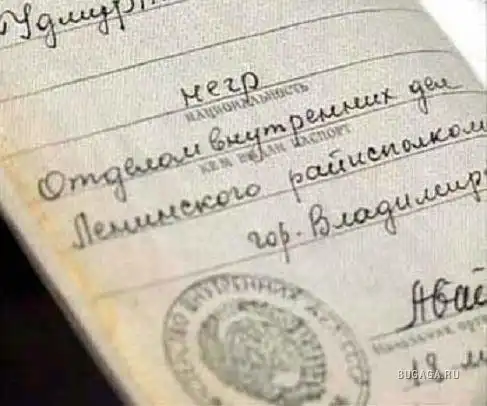 негр
НАЦИОНАЛЬНОСТЬ
Отделом внутренних дел
КЕМ ВЫДАН ПАСПОРТ
Ленинского райисполком
гор. Владимир
Начальник орг
18
BUGAGA.RU